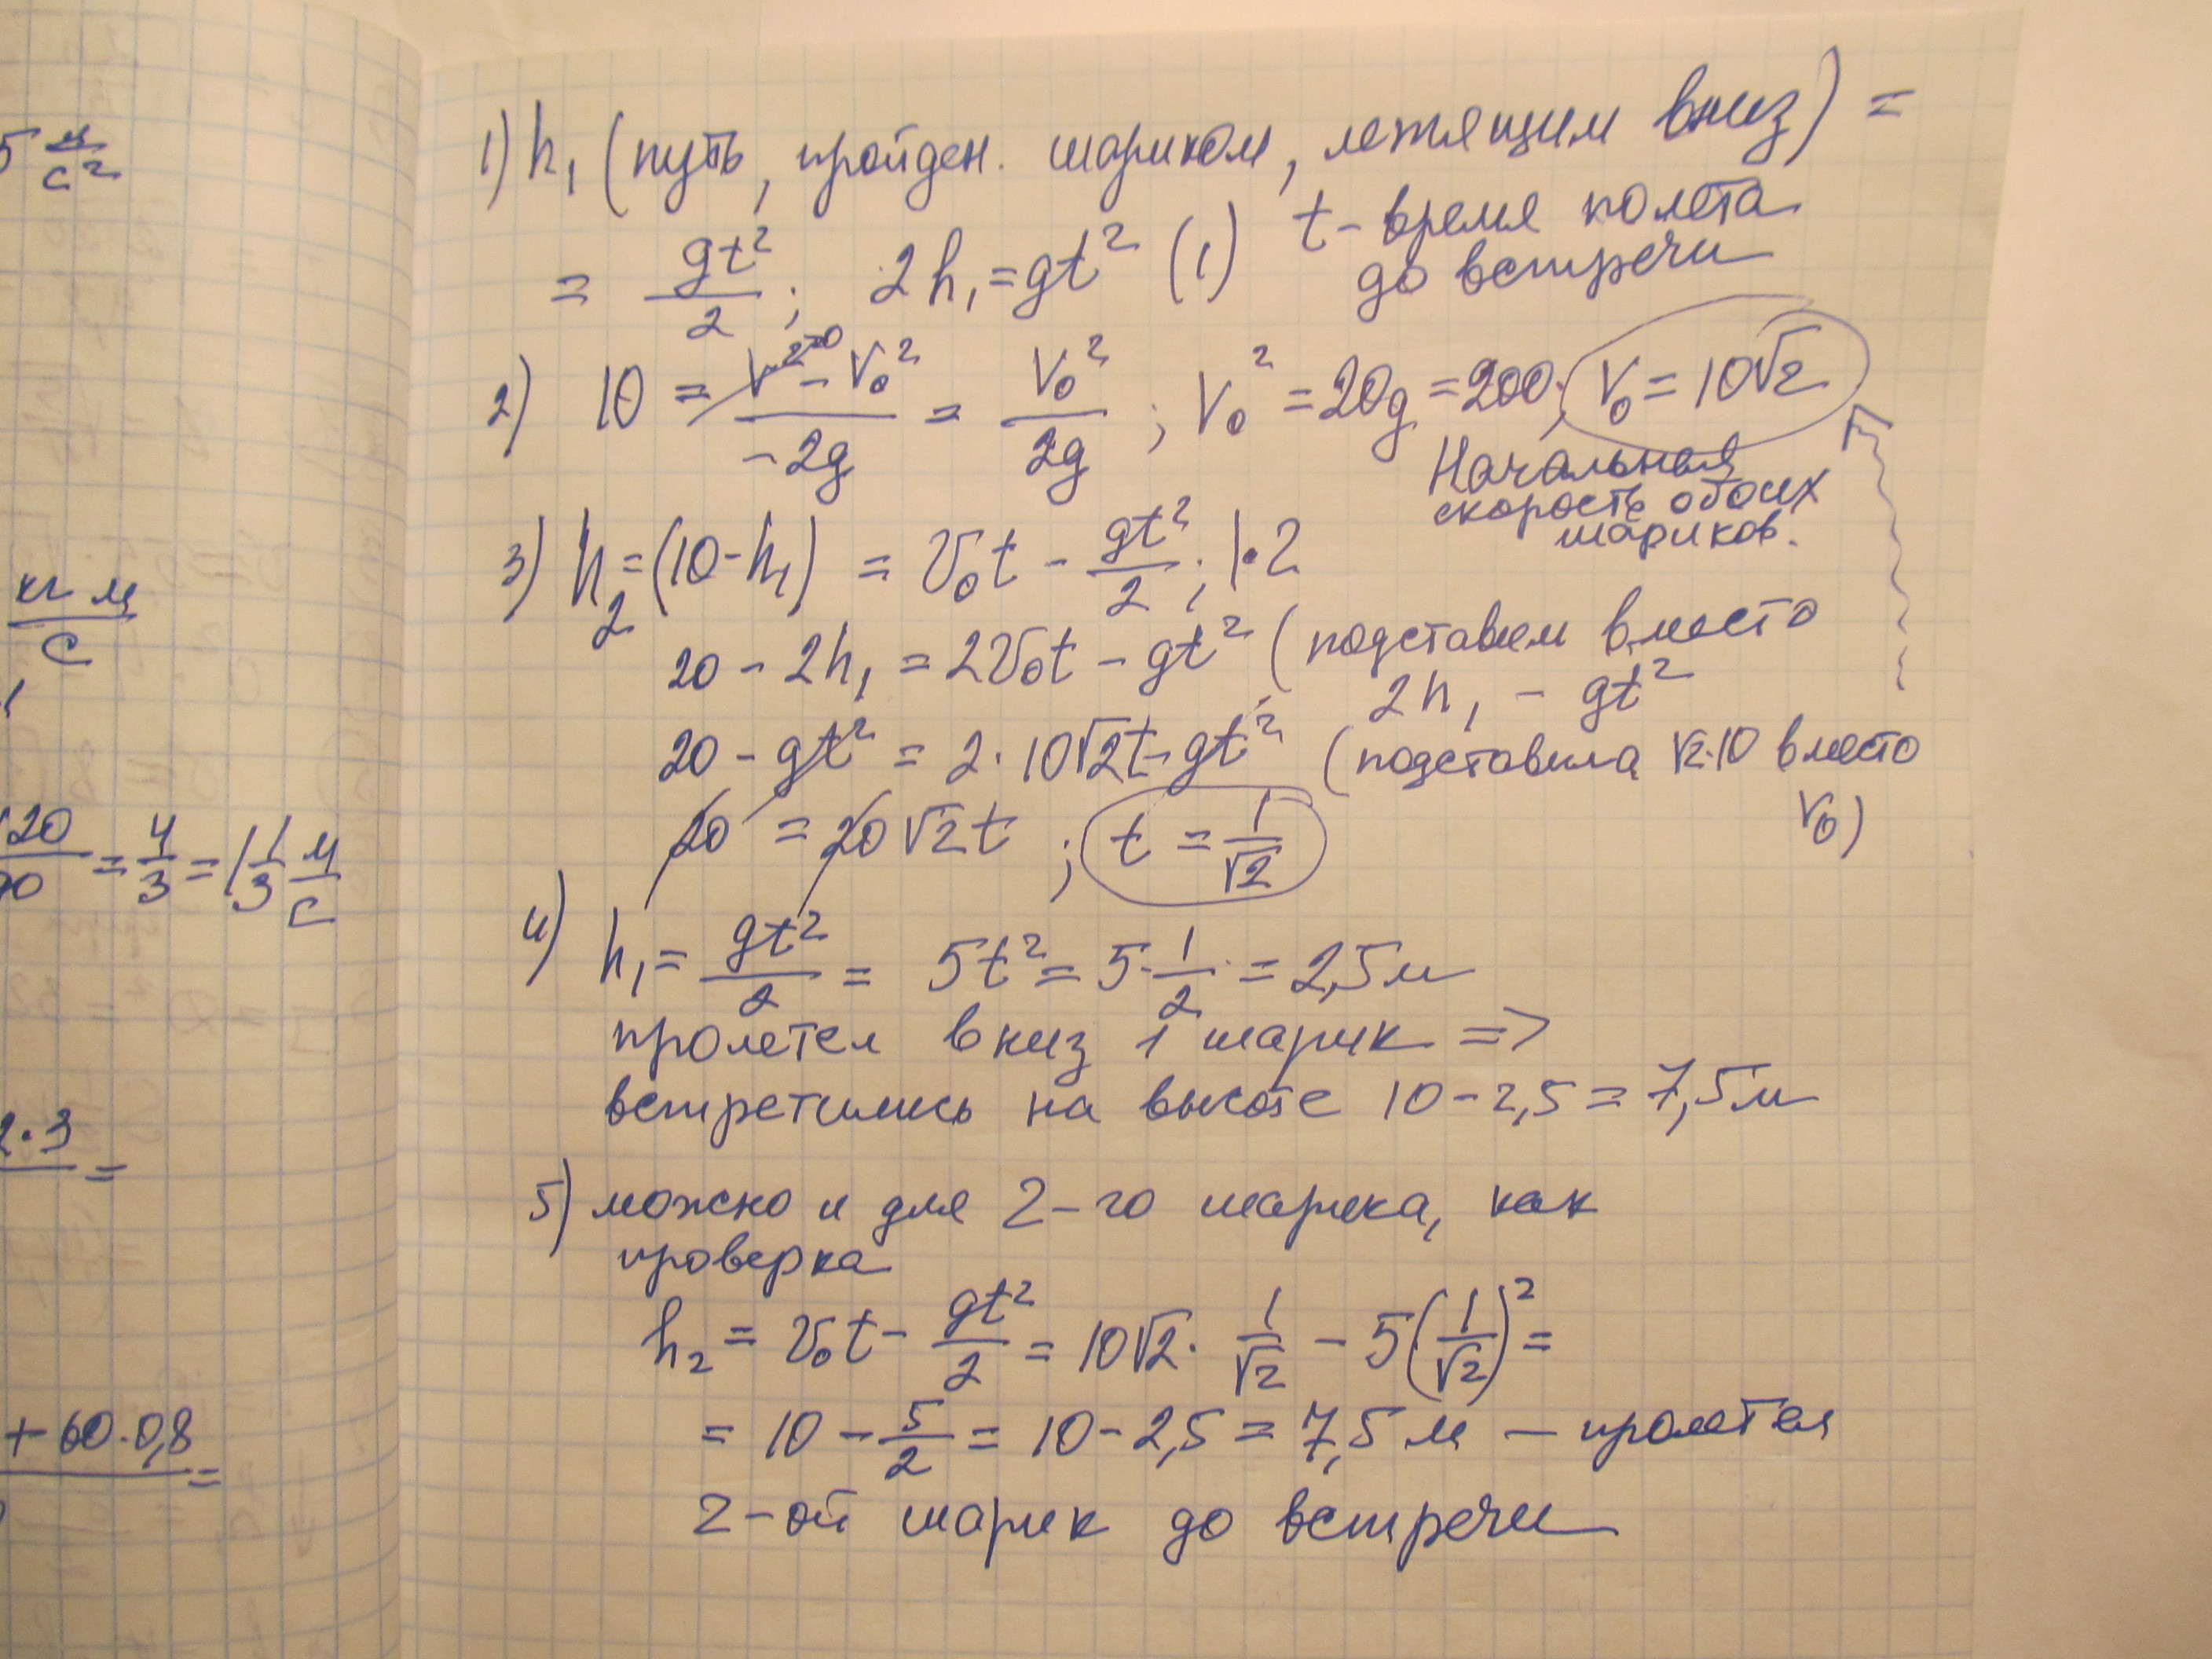 5 м/с²
кг м/с
1
120/90 = 4/3 = 1 1/3 м/с
2·3
=
+ 60·0,8
=
1) h₁ (путь, пройден. шариком, летящим вниз) =
= gt²/2 ; 2h₁ = gt² (1) t – время полёта
до встречи
2) 10 = (V²⁼⁰ – V₀²)/(–2g) = V₀²/2g ; V₀² = 20g = 200; V₀ = 10√2
Начальная
скорость обоих
шариков.
3) h₂ = (10 – h₁) = V₀t – gt²/2 ; |·2
20 – 2h₁ = 2V₀t – gt² (подставим вместо
2h₁ – gt²
20 – gt² = 2·10√2t – gt² (подставила √2·10 вместо
V₀)
20 = 20√2t ; t = 1/√2
4) h₁ = gt²/2 = 5t² = 5·1/2 = 2,5 м
пролетел вниз 1 шарик =>
встретились на высоте 10 – 2,5 = 7,5 м
5) можно и для 2-го шарика, как
проверка
h₂ = V₀t – gt²/2 = 10√2 · 1/√2 – 5(1/√2)² =
= 10 – 5/2 = 10 – 2,5 = 7,5 м – пролетел
2-ой шарик до встречи